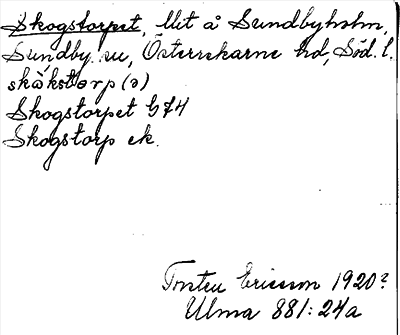 Skogstorpet, lht å Sundbyholm,
Sundby sn, Österrekarne hd, Söd. l.
skåkstorp(ə)
Skogstorpet GJH
Skogstorp ek.
Torsten Ericsson 1920?
Ulma 881:24a